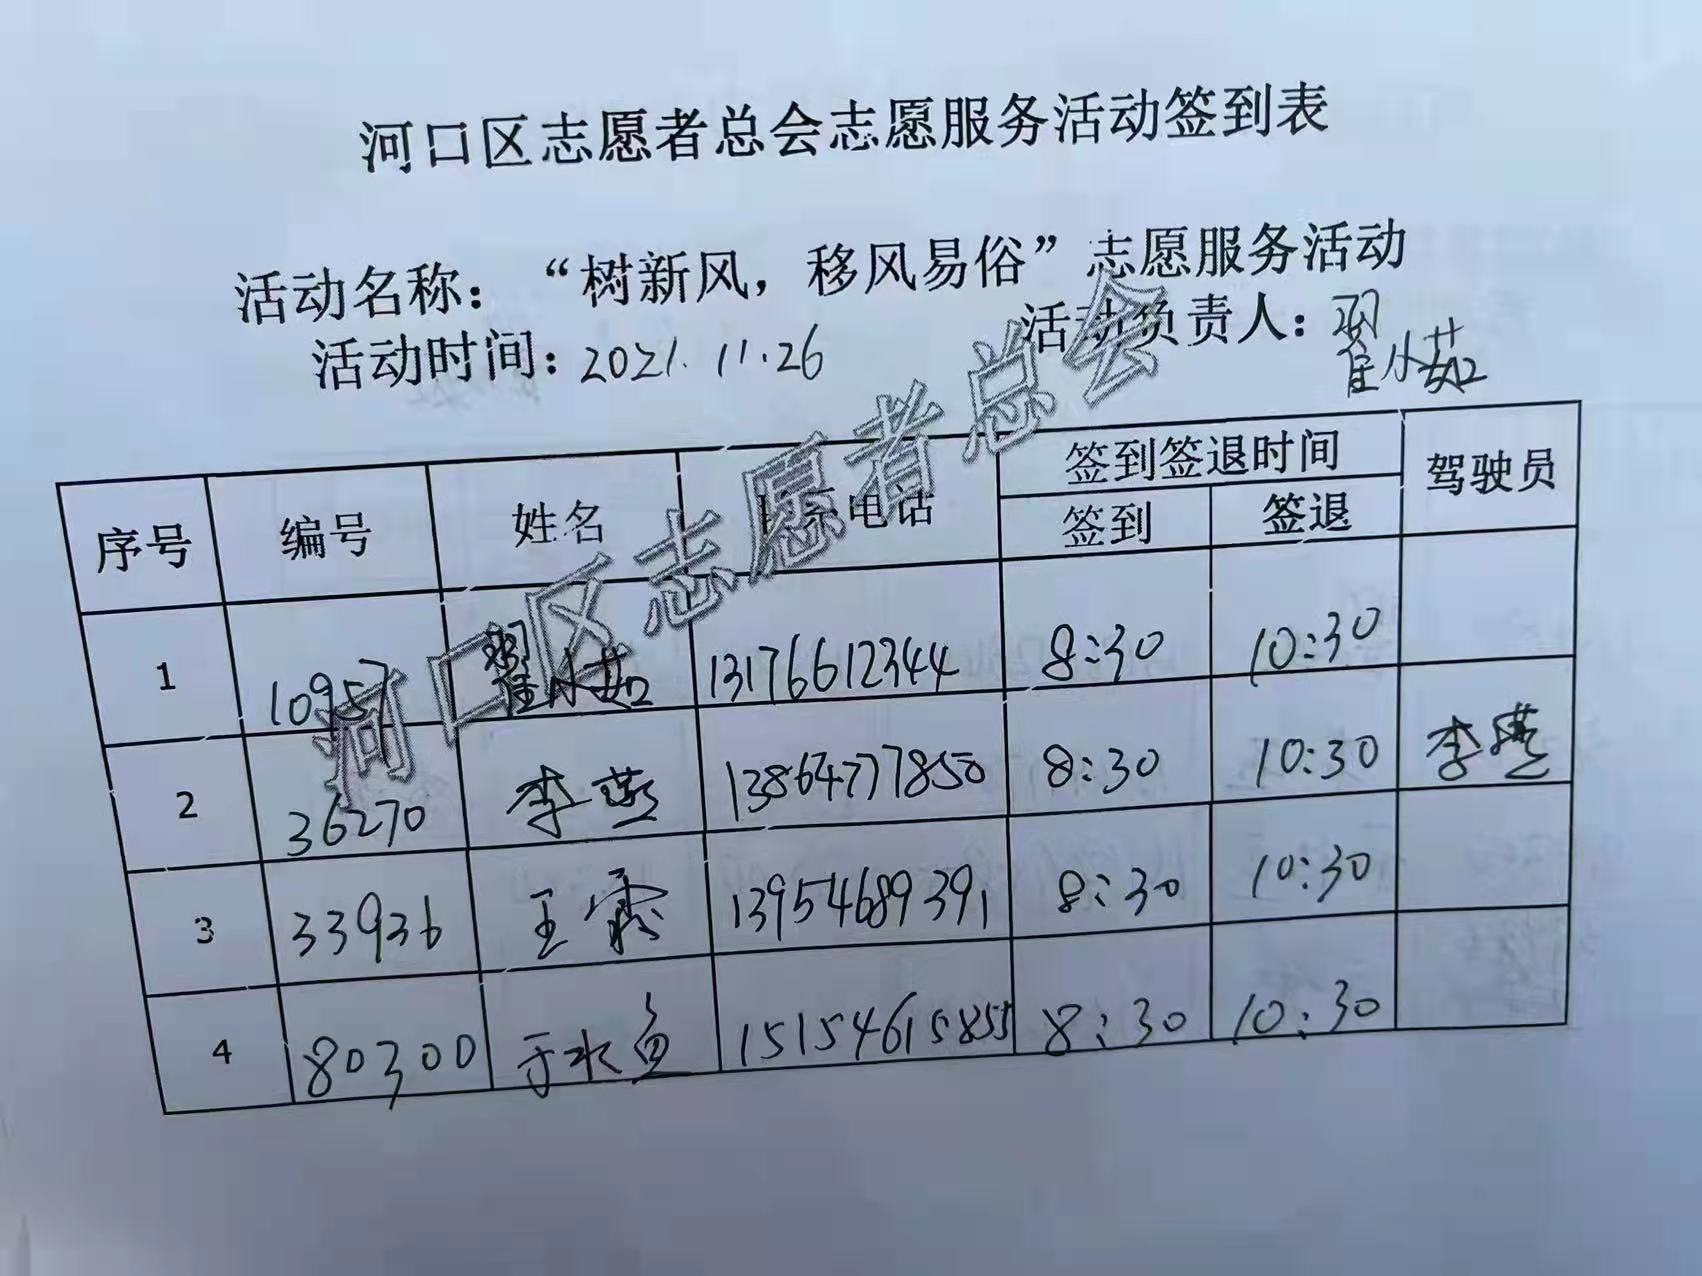 河口区志愿者总会志愿服务活动签到表
活动名称：“树新风，移风易俗”志愿服务活动
活动时间：2021.11.26 活动负责人：翟小茹
序号 编号 姓名 联系电话 签到签退时间 驾驶员
签到 签退
1 10957 翟小茹 13176612344 8:30 10:30
2 36270 李燕 13864777850 8:30 10:30 李燕
3 33936 王霞 13954689391 8:30 10:30
4 80300 于水鱼 15154615855 8:30 10:30
河口区志愿者总会